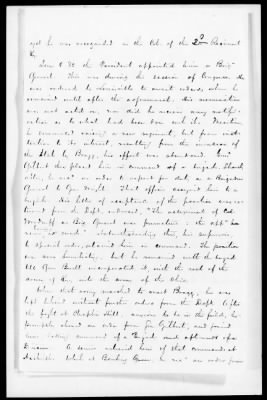 yet he was recognized as the Col. of the 2d Regiment
Ky.
June 1 '62 the President appointed him a Brig'
General. This was during the session of Congress. He
was ordered to Louisville to await orders, where he
remained until after the adjournment, this nomination
was not acted on nor did he receive any notifi-
cation as to what had been done with it. Therefore
he commenced raising a new regiment, but from
to its interest, resulting from the invasion of
the State by Bragg, his effort was abandoned. Genl
Gilbert then placed him in command of a brigade, which
after, he rec'd an order to report for duty as a Brigadier
General to Gen. Wright. That officer assigned him to a
brigade. His letter of acceptance of the position was
from the Dept. endorsed, "The assignment of Col
as Brig General was premature; the app't has
not been made". Notwithstanding this, his superiors
by special order, retained him in command. The position
was now humiliating, but he remained with the brigade
till Gen Buell incorporated it, with the rest of the
army of Ky, into the army of the Ohio.
When that army marched to meet Bragg, he was
left behind without further orders from the Dept. After
the fight at Chaplin Hill, anxious to be in the field, he
promptly obeyed an order from Gen Gilbert, and joined
him, taking command of a Brigade and afterwards of a
Division. A senior relieved him of that command at
Nashville. While at Bowling Green he rec'd an order from